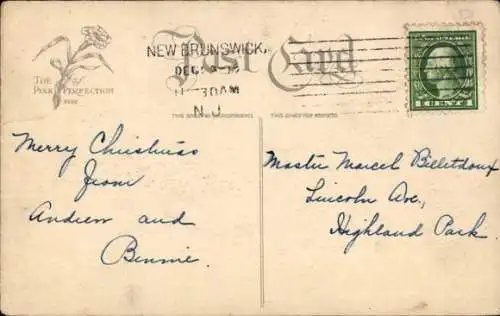 Post Card
THE PINK of PERFECTION
NEW BRUNSWICK,
DEC
11 30AM
N.J.
1 CENT 1
THIS SPACE FOR CORRESPONDENCE
THIS SPACE FOR ADDRESS
Merry Christmas
from
Andrew and
Bennie.
Master Marcel Billetdoux
Lincoln Ave.,
Highland Park.